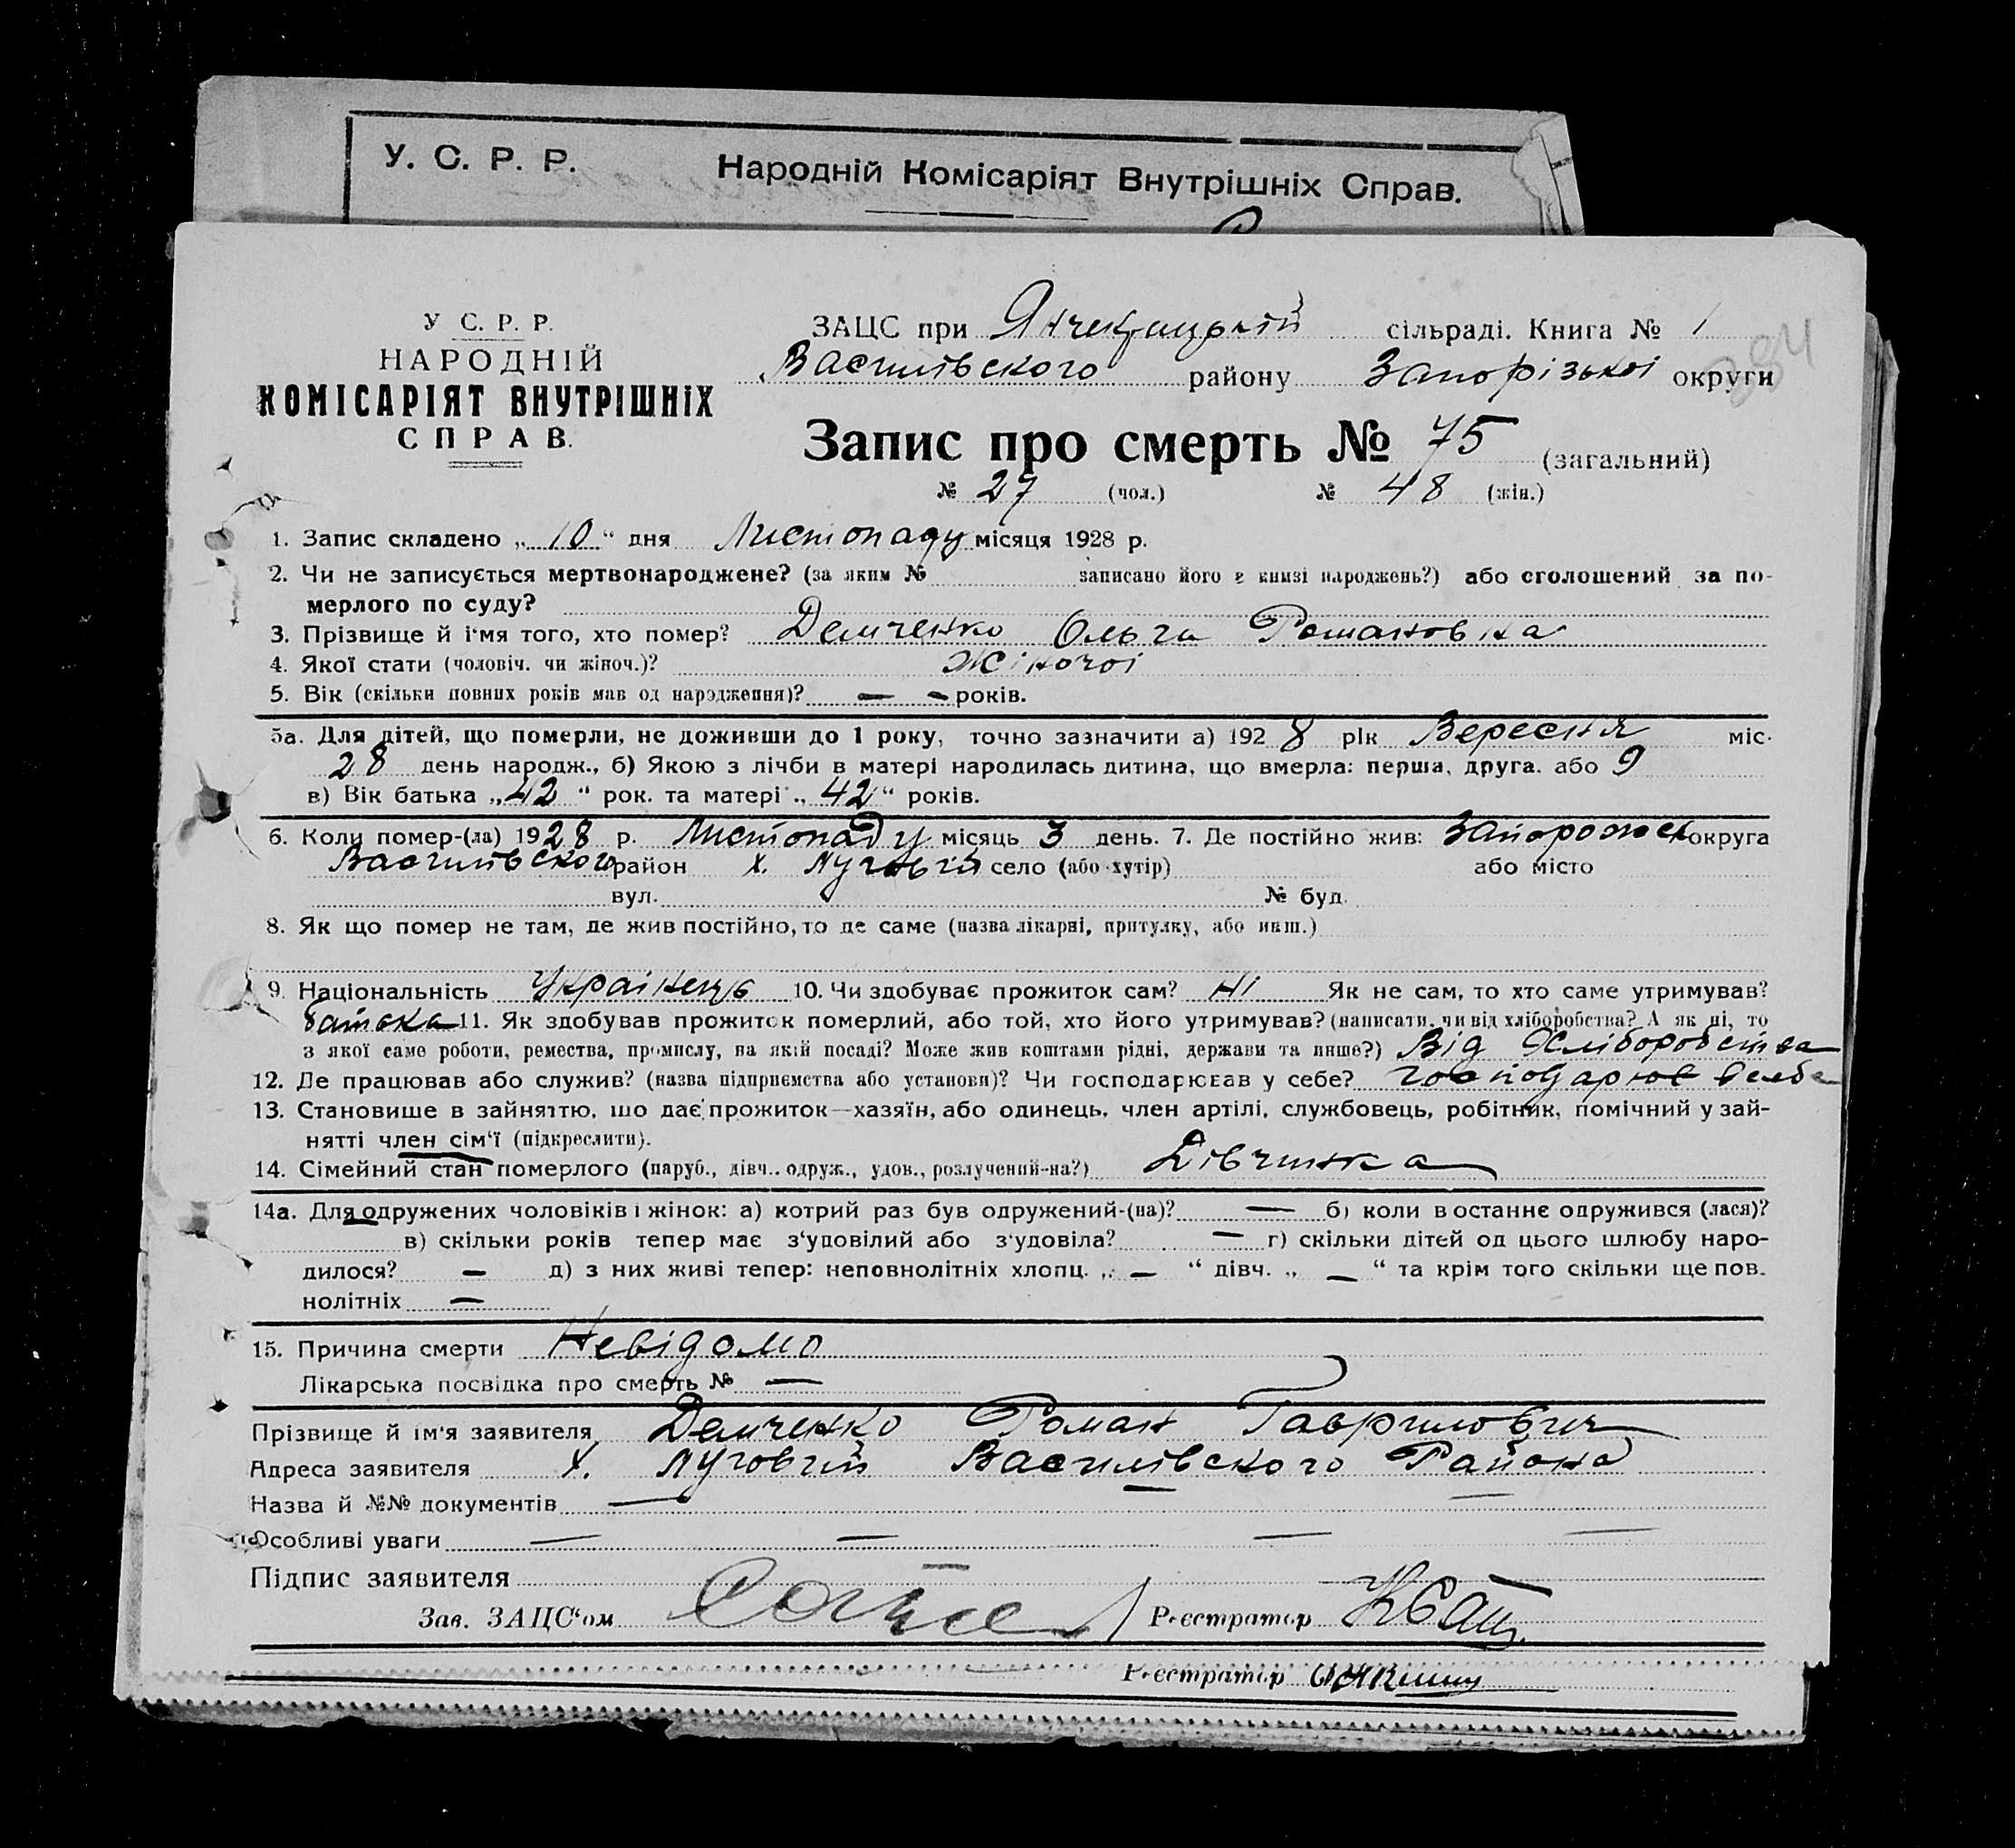 У. С. Р. Р. Народній Комісаріят Внутрішніх Справ.
У С. Р. Р.
НАРОДНІЙ
КОМІСАРІЯТ ВНУТРІШНІХ
СПРАВ.
ЗАЦС при Янчекрацькій сільраді. Книга № 1
384
Василівского району Запорізькоі округи
Запис про смерть № 75 (загальний)
№ 27 (чол.) № 48 (жін.)
1. Запис складено „ 10 “ дня Листопаду місяця 1928 р.
2. Чи не записується мертвонароджене? (за яким № записано його в книзі народжень?) або оголошений за по-
мерлого по суду?
3. Прізвище й ім'я того, хто помер? Демченко Ольга Романовна
4. Якої стати (чоловіч. чи жіноч.)? Жіночоі
5. Вік (скільки повних років мав од народження)? — - років.
5а. Для дітей, що померли, не доживши до 1 року, точно зазначити а) 1928 рік Вересня міс.
28 день народж., б) Якою з лічби в матері народилась дитина, що вмерла: перша, друга. або 9
в) Вік батька „ 42 “ рок. та матері „ 42 “ років.
6. Коли помер-(ла) 1928 р. Листопаду місяць 3 день. 7. Де постійно жив: Запорожск округа
Василівского район х. Луговій село (або хутір) або місто
вул. № буд.
8. Як що помер не там, де жив постійно, то де саме (назва лікарні, притулку, або инш.)
9. Національність Украінець 10. Чи здобуває прожиток сам? Ні Як не сам, то хто саме утримував?
батька 11. Як здобував прожиток померлий, або той, хто його утримував? (написати, чи від хліборобства? А як ні, то
з якої саме роботи, ремества, промислу, на якій посаді? Може жив коштами рідні, держави та инше?) Від Хліборобства
12. Де працював або служив? (назва підприємства або установи)? Чи господарював у себе? господарював в себе
13. Становище в зайняттю, що дає прожиток—хазяїн, або одинець, член артілі, службовець, робітник, помічний у зай-
нятті член сім‘ї (підкреслити).
14. Сімейний стан померлого (паруб., дівч., одруж., удов., розлучений-на?) Дівчинка
14а. Для одружених чоловіків і жінок: а) котрий раз був одружений-(на)? — б) коли востаннє одружився (лася)?
в) скільки років тепер має з‘удовілий або з‘удовіла? — г) скільки дітей од цього шлюбу наро-
дилося? — д) з них живі тепер: неповнолітніх хлопц. „ — “ дівч. „ — “ та крім того скільки ще пов.
нолітніх —
15. Причина смерти Невідомо
Лікарська посвідка про смерть № —
Прізвище й ім'я заявителя Демченко Роман Гаврилович
Адреса заявителя х. Луговій Василівского Района
Назва й №№ документів — —
Особливі уваги — — — —
Підпис заявителя —
Зав. ЗАЦС‘ом Реєстратор
Реєстратор